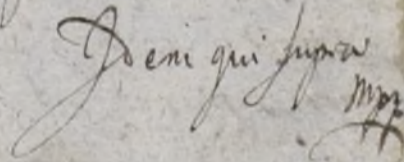 Idem qui supra
mpp